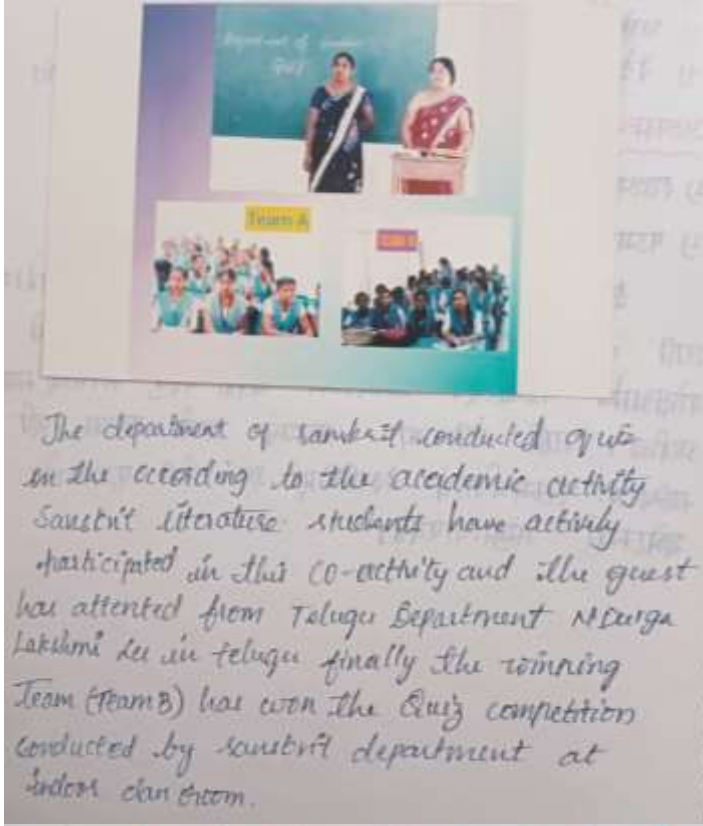 Department of Sanskrit
Quiz
Team A
Team B
The department of sanskrit conducted quiz
in the according to the academic activity
Sanskrit literature students have actively
participated in this co-activity and the guest
has attented from Telugu Department N Durga
Lakshmi Lec in telugu finally the winning
Team (Team B) has won the Quiz competition
conducted by sanskrit department at
indoor clan room.